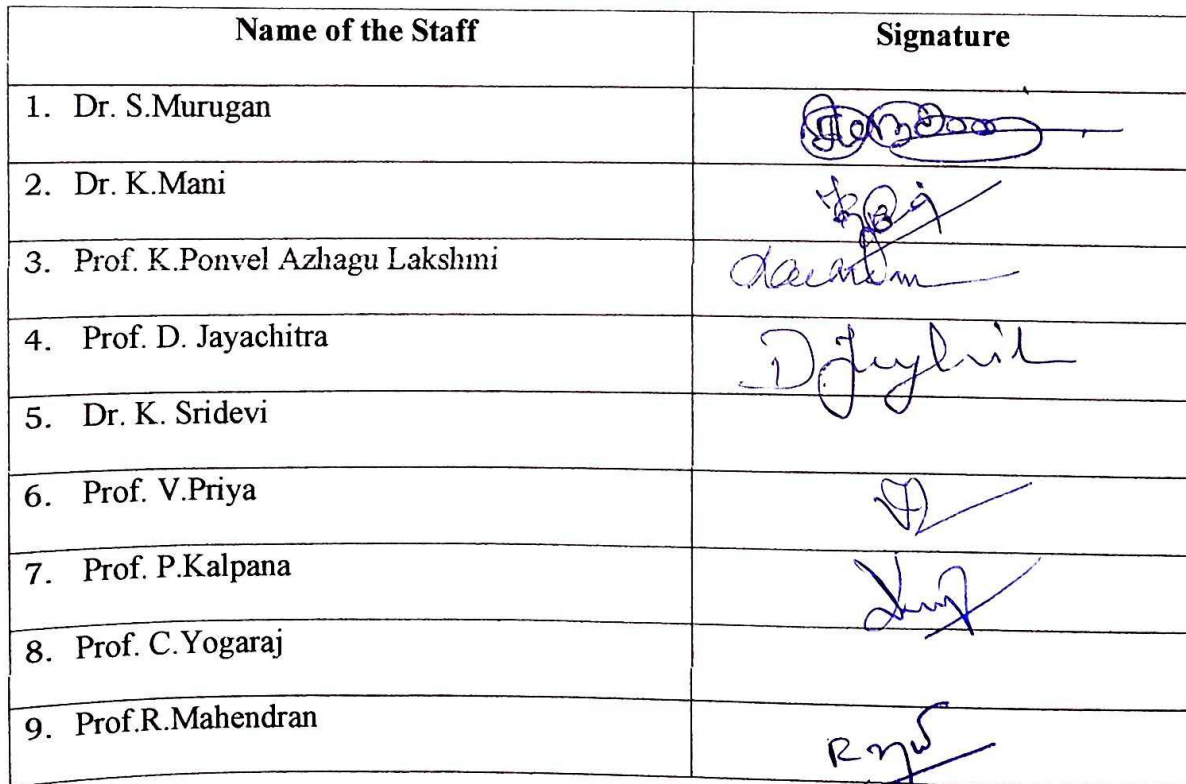 Name of the Staff Signature
1. Dr. S.Murugan
2. Dr. K.Mani
3. Prof. K.Ponvel Azhagu Lakshmi
4. Prof. D. Jayachitra
5. Dr. K. Sridevi
6. Prof. V.Priya
7. Prof. P.Kalpana
8. Prof. C.Yogaraj
9. Prof.R.Mahendran